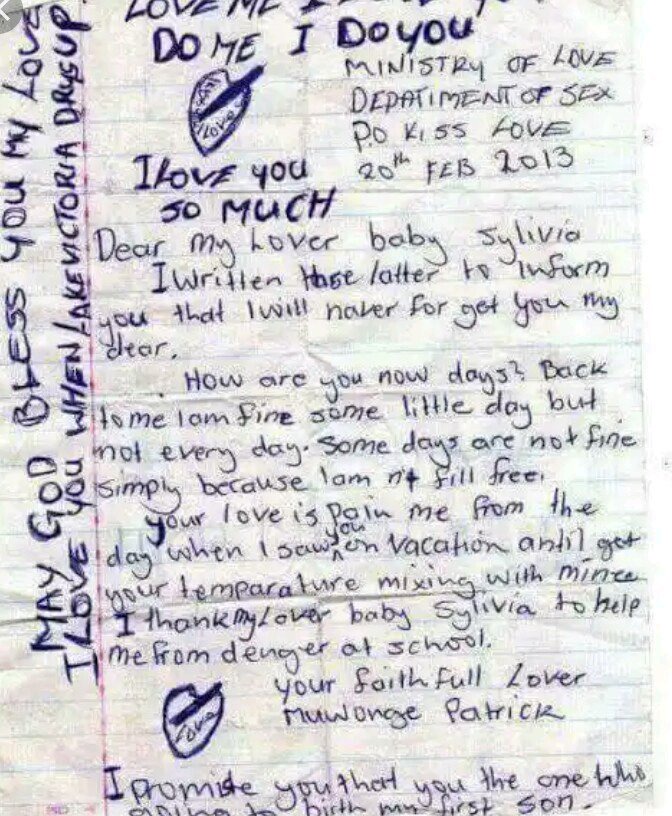 LOVE ME I
DO ME I DO YOU
MINISTRY OF LOVE
DEPATIMENT OF SEX
P.O KISS LOVE
20th FEB 2013
I LOVE YOU
SO MUCH
Dear my Lover baby Sylivia
I written these latter to Inform
you that I will naver for get you my
dear.
How are you now days? Back
to me I am fine some little day but
not every day. Some days are not fine
simply because I am not fill free.
your love is pain me from the
day when I saw you on vacation antil get
your temparature mixing with mine
I thank my Lover baby Sylivia to help
me from denger at school.
your faithfull Lover
Muwonge Patrick
Love
I promise you that you the one who
going to birth my first son.
MAY GOD BLESS YOU MY LOVE
I LOVE YOU WHEN LAKE VICTORIA DRYS UP.